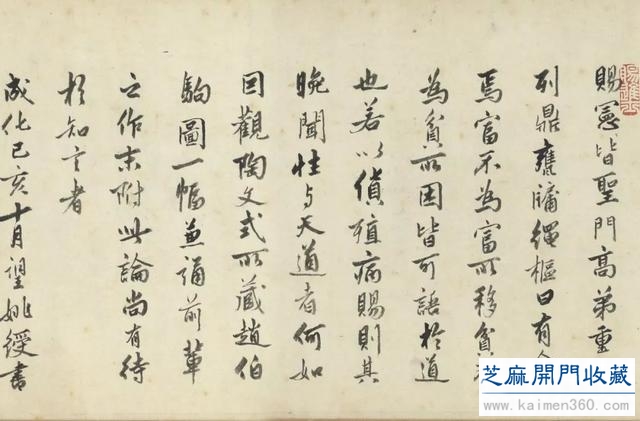 賜憲皆聖門高弟重
列鼎甕牖繩樞日有
焉富不為富所移貧
為貧所困皆可語於道
也若以貨殖病賜則其
晚聞性与天道者何如
因觀陶文式所藏趙伯
駒圖一幅兼誦前輩
之作末附此論尚有待
於知言者
成化己亥十月望姚綬書
芝麻開門收藏
www.kaimen360.com